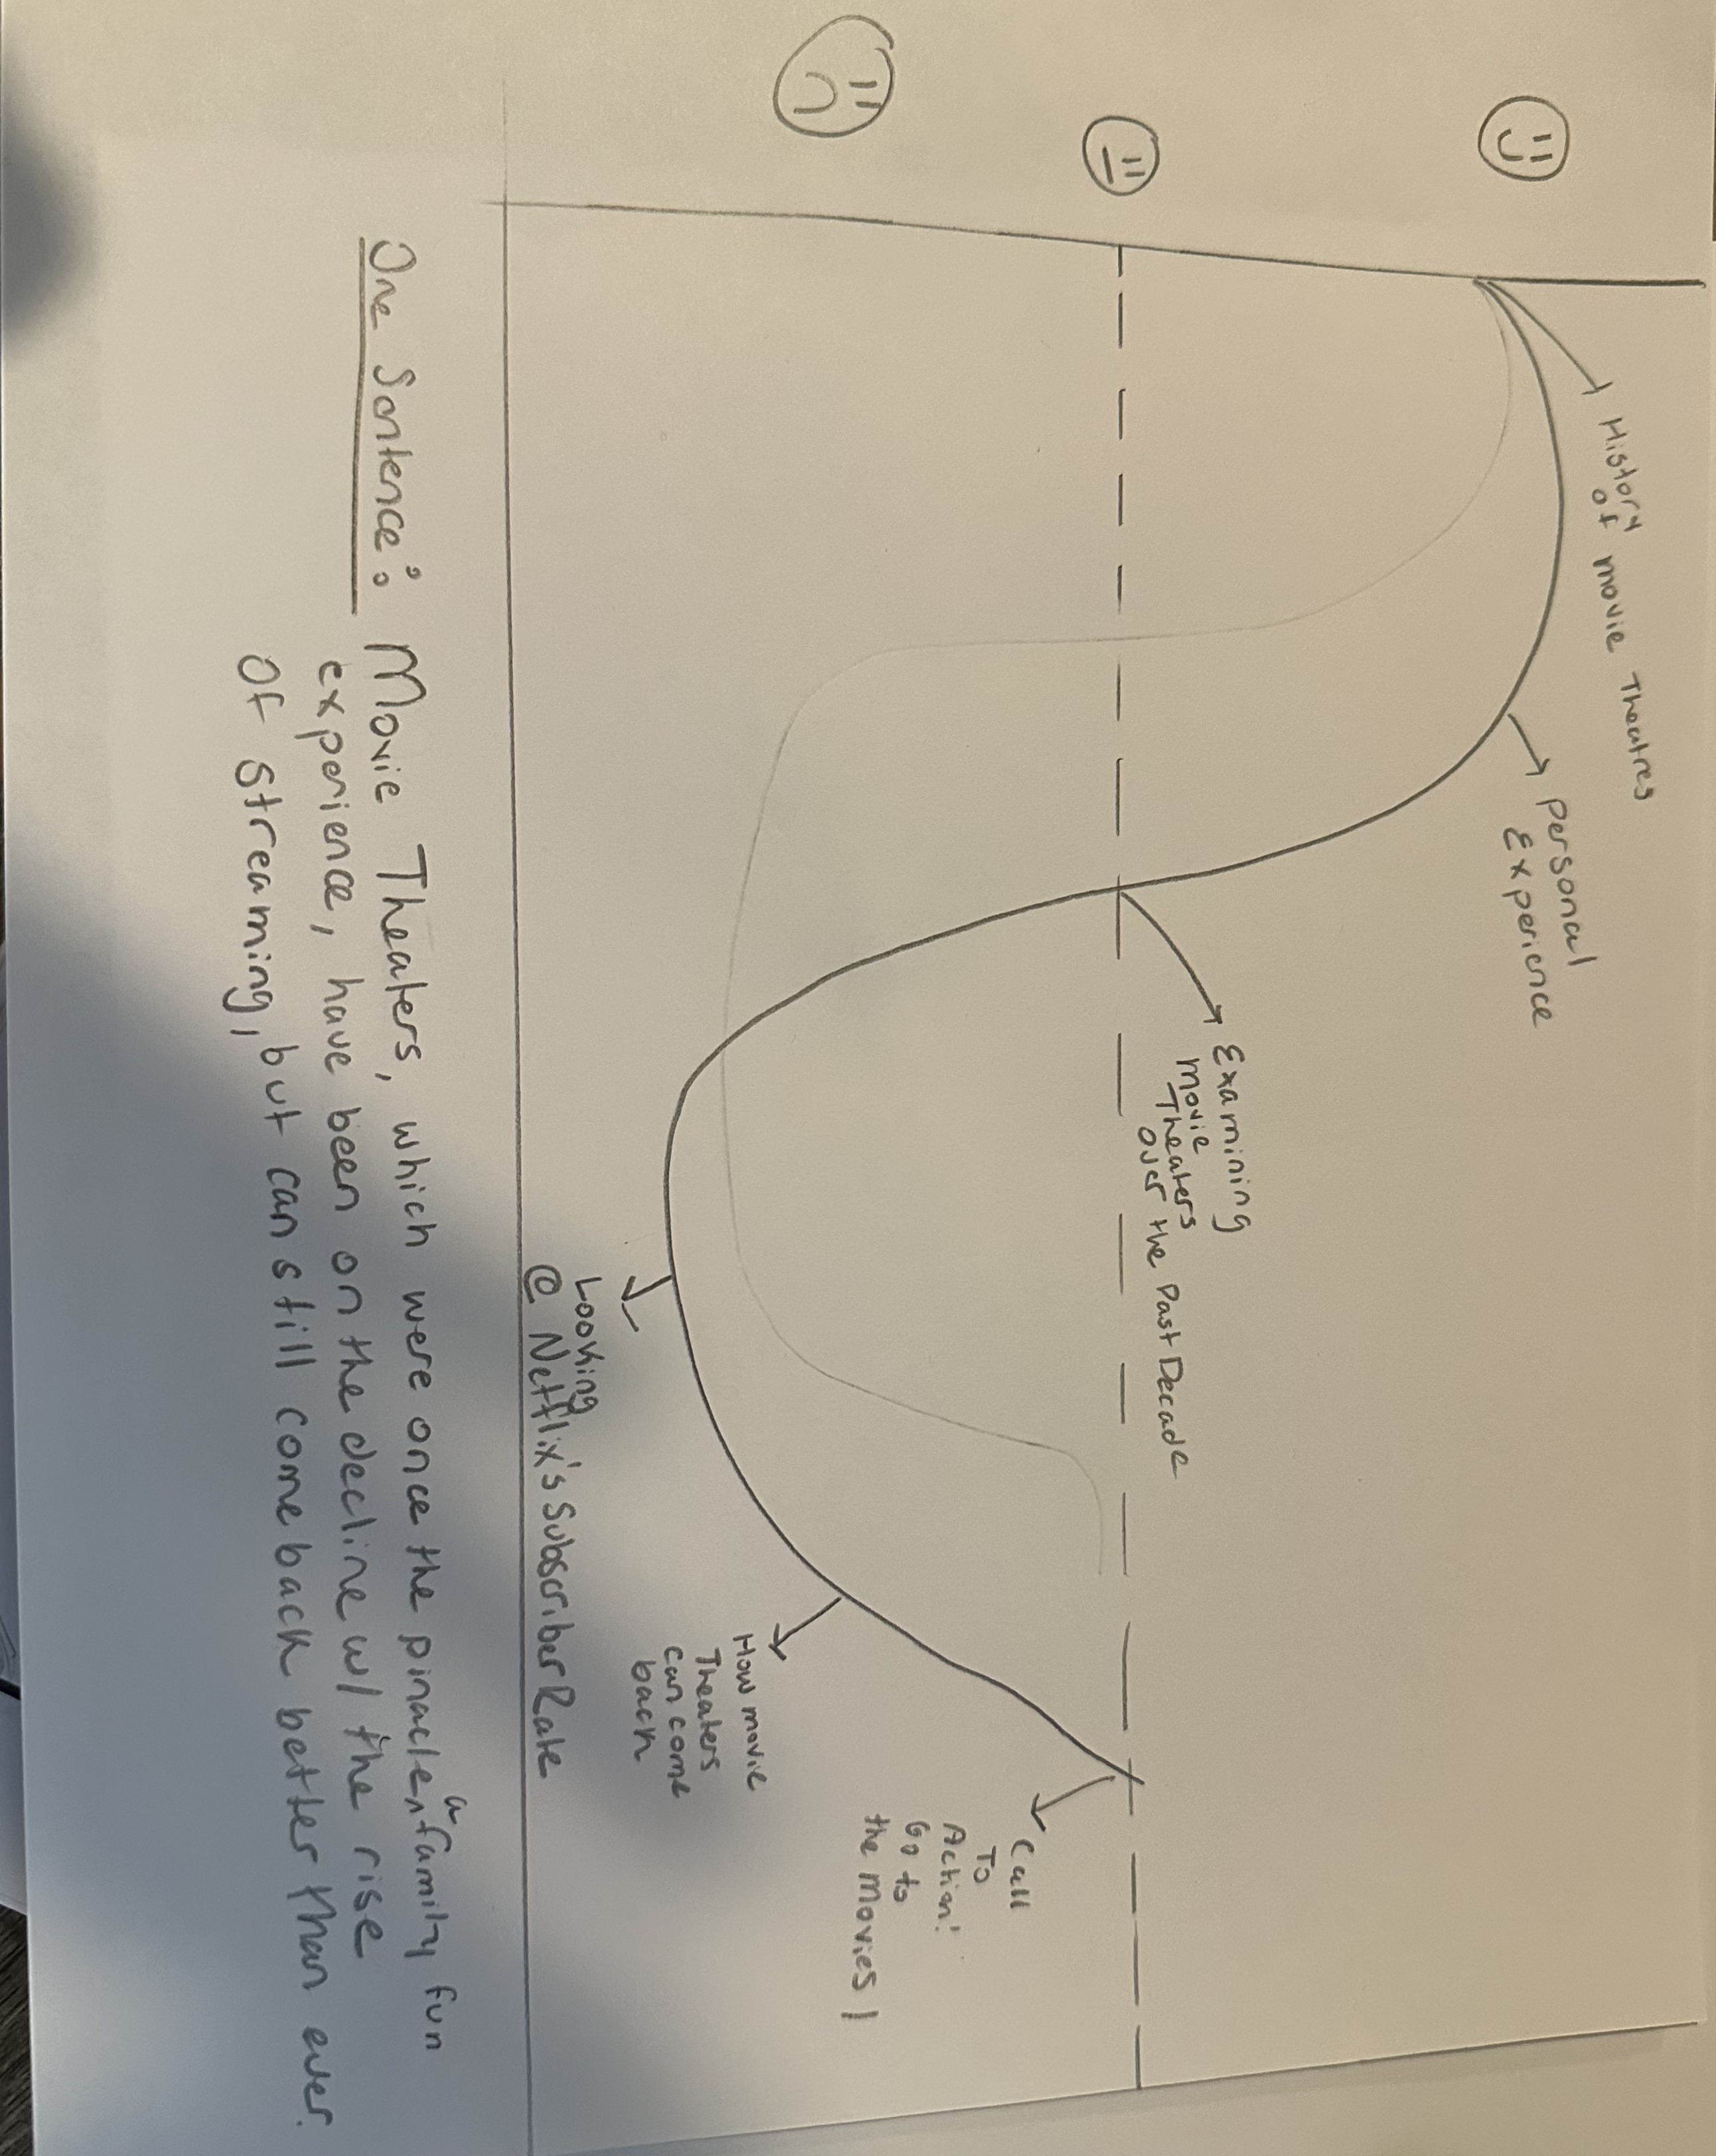 History
of movie Theatres
Personal
Experience
Examining
movie
Theaters
over the Past Decade
Looking
@ Netflix's Subscriber Rate
How movie
Theaters
can come
back
Call
To
Action!
Go to
the movies!
One Sentence: Movie Theaters, which were once the pinacle a family fun
experience, have been on the decline w/ the rise
of streaming, but can still come back better than ever.